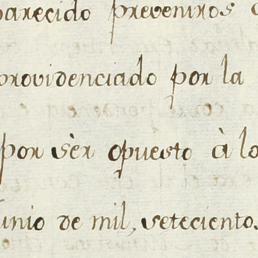 parecido preveniros
providenciado por la
por sèr opuesto à lo
unio de mil, setecientos